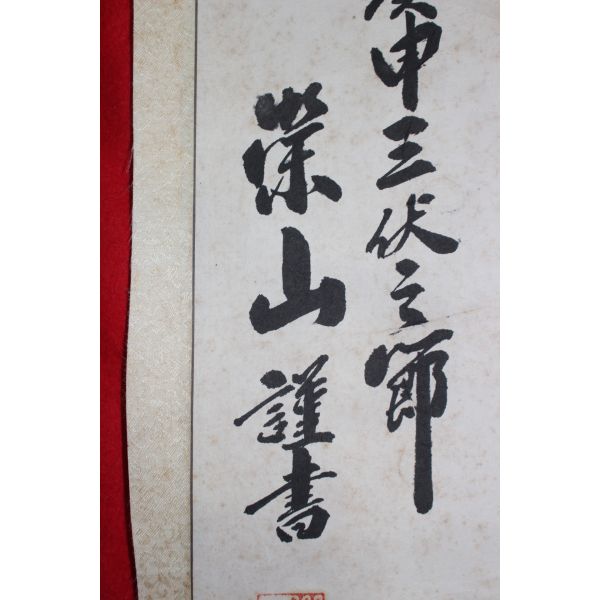 庚申三伏之節
榮山謹書